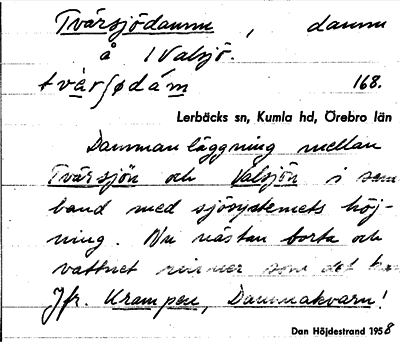 Tvärsjödamm, damm
å 1 Valsjö.
tvàrsødám 168.
Lerbäcks sn, Kumla hd, Örebro län
Dammanläggning mellan
Tvärsjön och Valsjön i sam
band med sjösystemets höj-
ning. Nu nästan borta och
vattnet rinner som det
Jfr. Krampen, Dammakvarn!
Dan Höjdestrand 1958